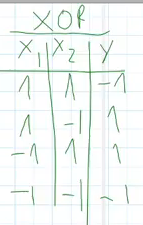 XOR
X1 X2 Y
1 1 -1
1 -1 1
-1 1 1
-1 -1 -1